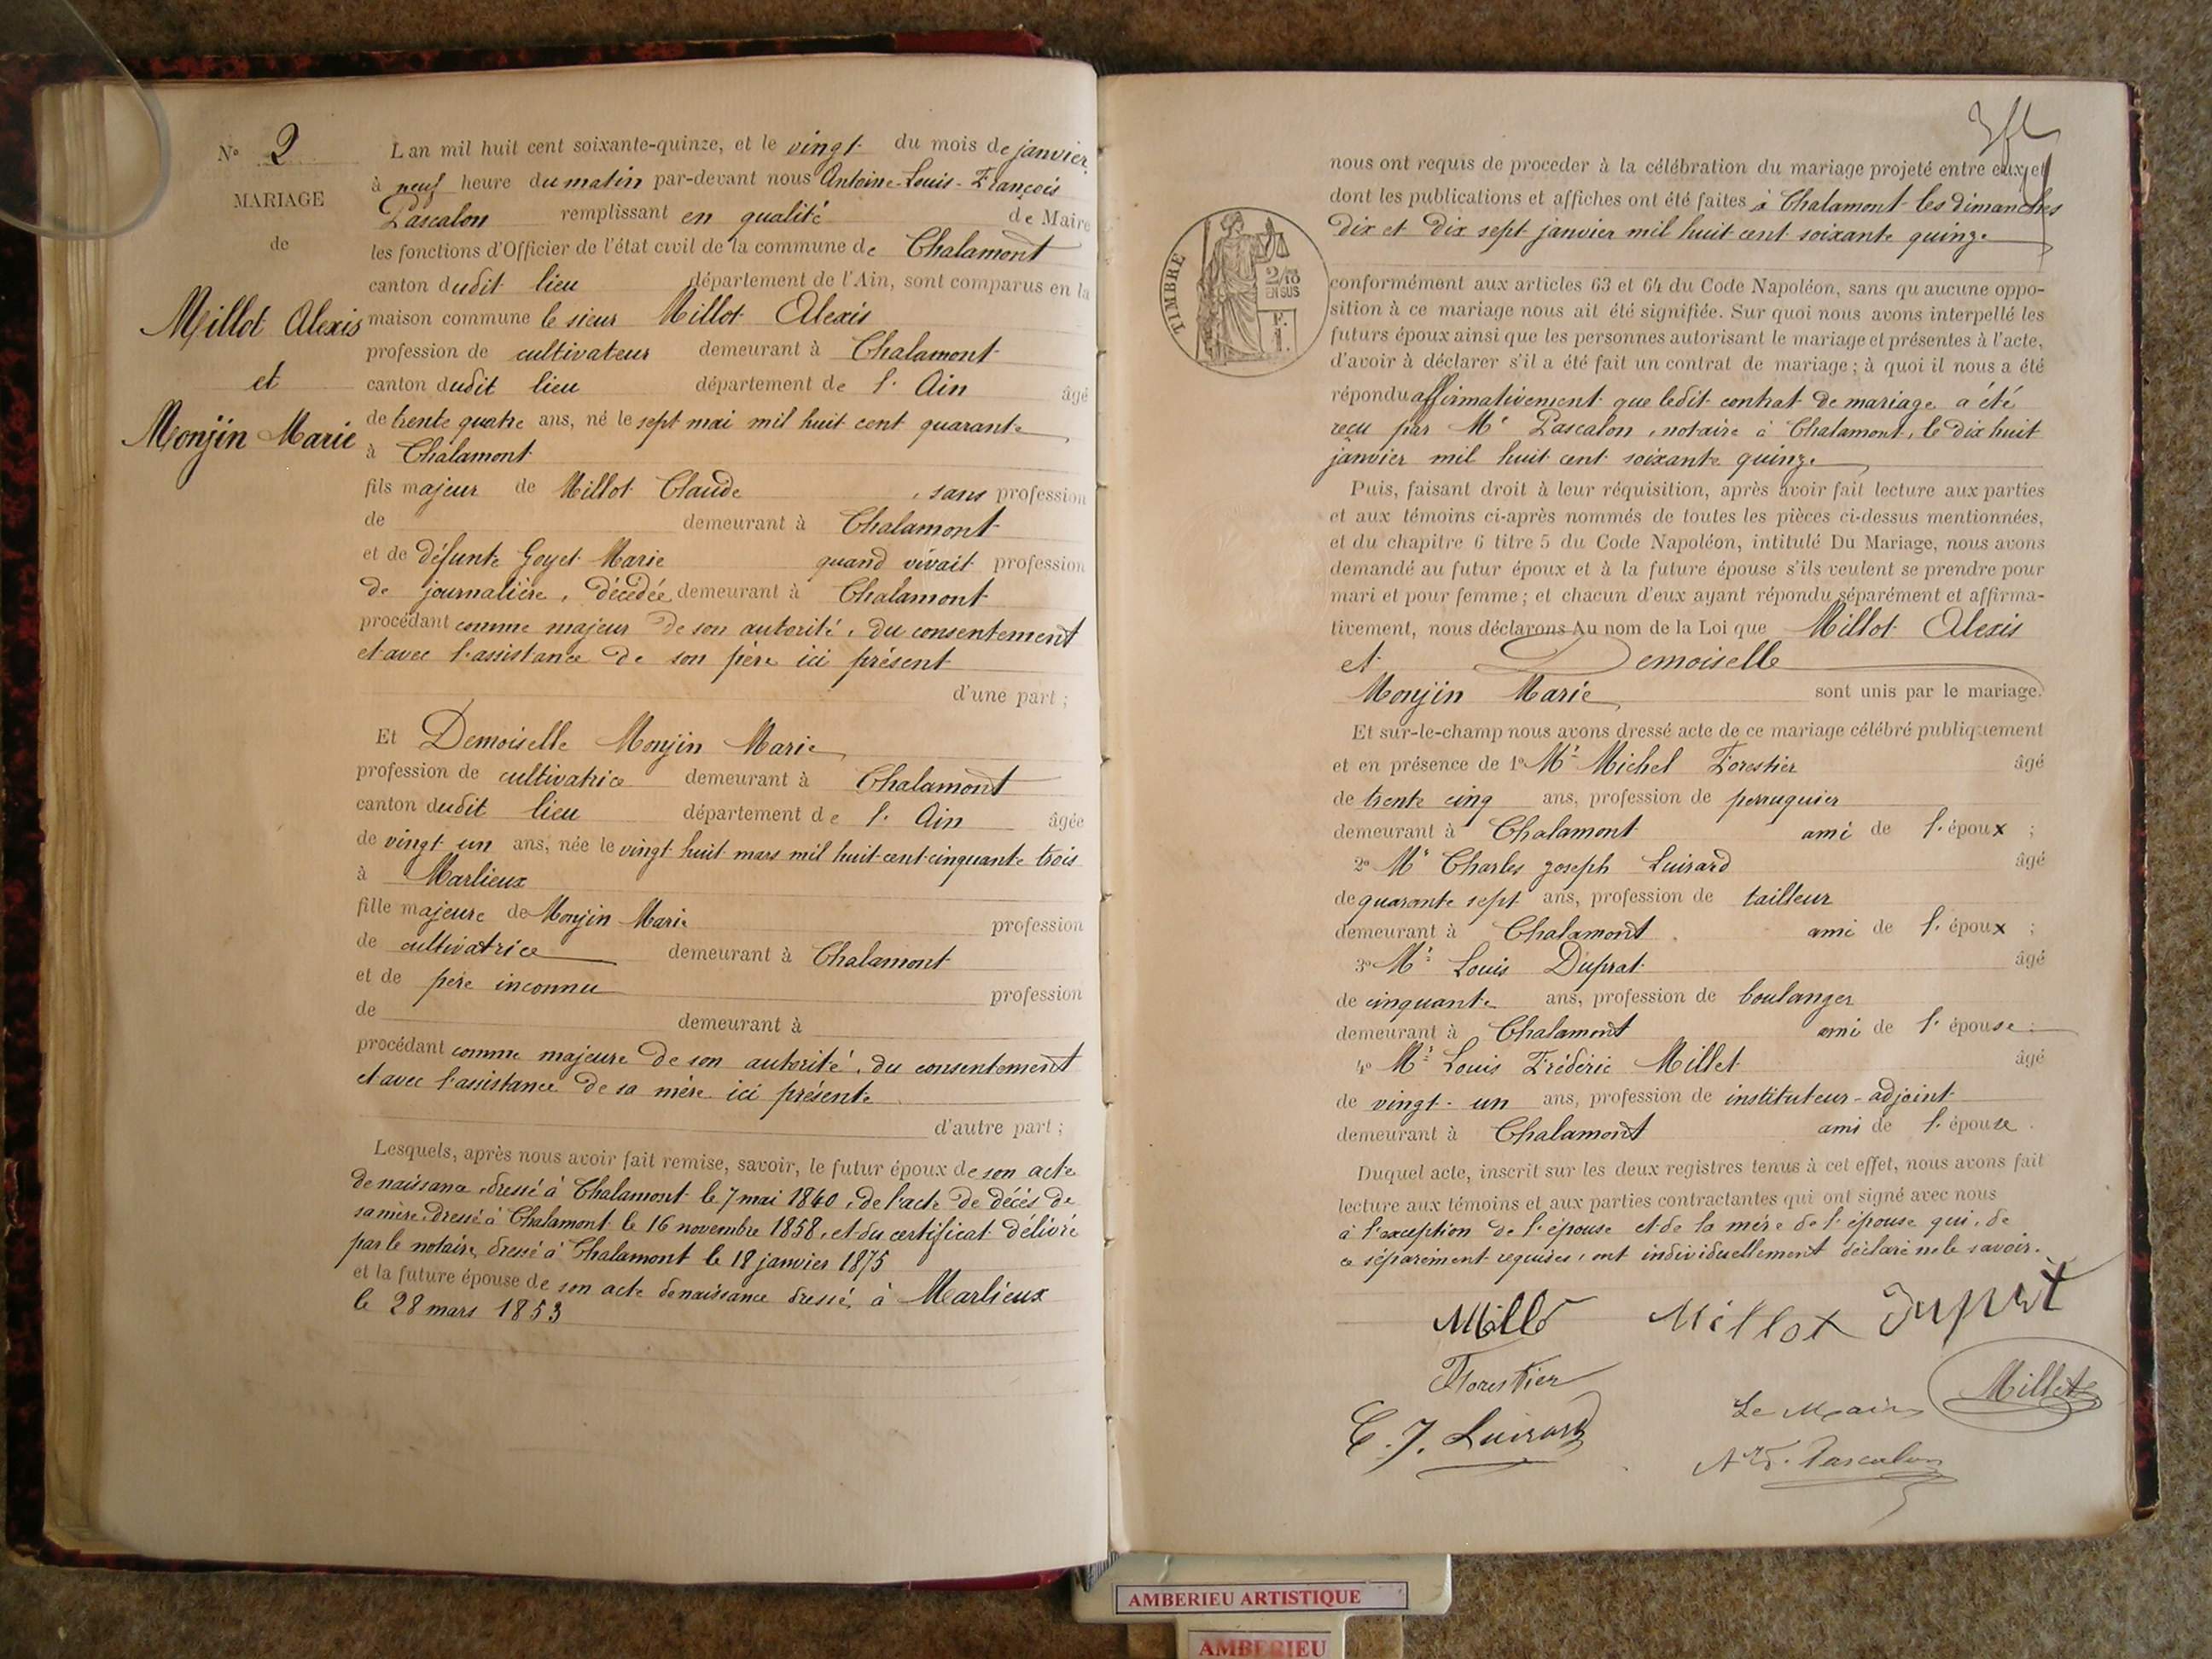 N° 2
MARIAGE
de
Millot Alexis
et
Monjin Marie
L'an mil huit cent soixante-quinze, et le vingt du mois de janvier
à neuf heure du matin par-devant nous Antoine-Louis-François
Pascalon remplissant en qualité de Maire
les fonctions d'Officier de l'état civil de la commune de Chalamont
canton dudit lieu département de l'Ain, sont comparus en la
maison commune le sieur Millot Alexis
profession de cultivateur demeurant à Chalamont
canton dudit lieu département de l'Ain âgé
de trente quatre ans, né le sept mai mil huit cent quarante
à Chalamont
fils majeur de Millot Claude, sans profession
de demeurant à Chalamont
et de défunte Goyet Marie quand vivait profession
de journalière, décédée demeurant à Chalamont
procédant comme majeur de son autorité, du consentement
et avec l'assistance de son père ici présent
d'une part ;
Et Demoiselle Monjin Marie
profession de cultivatrice demeurant à Chalamont
canton dudit lieu département de l'Ain âgée
de vingt un ans, née le vingt huit mars mil huit cent cinquante trois
à Marlieux
fille majeure de Monjin Marie profession
de cultivatrice demeurant à Chalamont
et de père inconnu profession
de demeurant à
procédant comme majeure de son autorité, du consentement
et avec l'assistance de sa mère ici présente
d'autre part ;
Lesquels, après nous avoir fait remise, savoir, le futur époux de son acte
de naissance, dressé à Chalamont le 7 mai 1840, de l'acte de décès de
sa mère, dressé à Chalamont le 16 novembre 1858, et du certificat délivré
par le notaire, dressé à Chalamont le 18 janvier 1875
et la future épouse de son acte de naissance dressé à Marlieux
le 28 mars 1853
nous ont requis de proceder à la célébration du mariage projeté entre eux et
dont les publications et affiches ont été faites à Chalamont les dimanches
dix et dix sept janvier mil huit cent soixante quinze
TIMBRE
2/10
EN SUS
F.
1.
conformément aux articles 63 et 64 du Code Napoléon, sans qu'aucune oppo-
sition à ce mariage nous ait été signifiée. Sur quoi nous avons interpellé les
futurs époux ainsi que les personnes autorisant le mariage et présentes à l'acte,
d'avoir à déclarer s'il a été fait un contrat de mariage ; à quoi il nous a été
répondu affirmativement que ledit contrat de mariage a été
reçu par Me Pascalon, notaire à Chalamont, le dix huit
janvier mil huit cent soixante quinze
Puis, faisant droit à leur réquisition, après avoir fait lecture aux parties
et aux témoins ci-après nommés de toutes les pièces ci-dessus mentionnées,
et du chapitre 6 titre 5 du Code Napoléon, intitulé Du Mariage, nous avons
demandé au futur époux et à la future épouse s'ils veulent se prendre pour
mari et pour femme ; et chacun d'eux ayant répondu séparément et affirma-
tivement, nous déclarons Au nom de la Loi que Millot Alexis
et Demoiselle
Monjin Marie sont unis par le mariage.
Et sur-le-champ nous avons dressé acte de ce mariage célébré publiquement
et en présence de 1° Mr Michel Forestier âgé
de trente cinq ans, profession de perruquier
demeurant à Chalamont ami de l'époux ;
2° Mr Charles Joseph Luisard âgé
de quarante sept ans, profession de tailleur
demeurant à Chalamont ami de l'époux ;
3° Mr Louis Duprat âgé
de cinquante ans, profession de boulanger
demeurant à Chalamont ami de l'épouse
4° Mr Louis Frédéric Millet âgé
de vingt-un ans, profession de instituteur-adjoint
demeurant à Chalamont ami de l'épouse.
Duquel acte, inscrit sur les deux registres tenus à cet effet, nous avons fait
lecture aux témoins et aux parties contractantes qui ont signé avec nous
à l'exception de l'épouse et de la mère de l'épouse qui, de
ce séparément requises, ont individuellement déclaré ne le savoir.
Millo Millot Duprat
Forestier
Millet
C. J. Luisard
Le Maire
Pascalon
AMBERIEU ARTISTIQUE
AMBERIEU